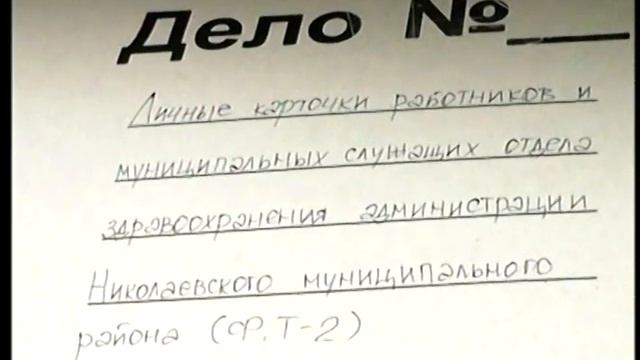 Дело №___
Личные карточки работников и
муниципальных служащих отдела
здравоохранения администрации
Николаевского муниципального
района (Ф.Т-2)